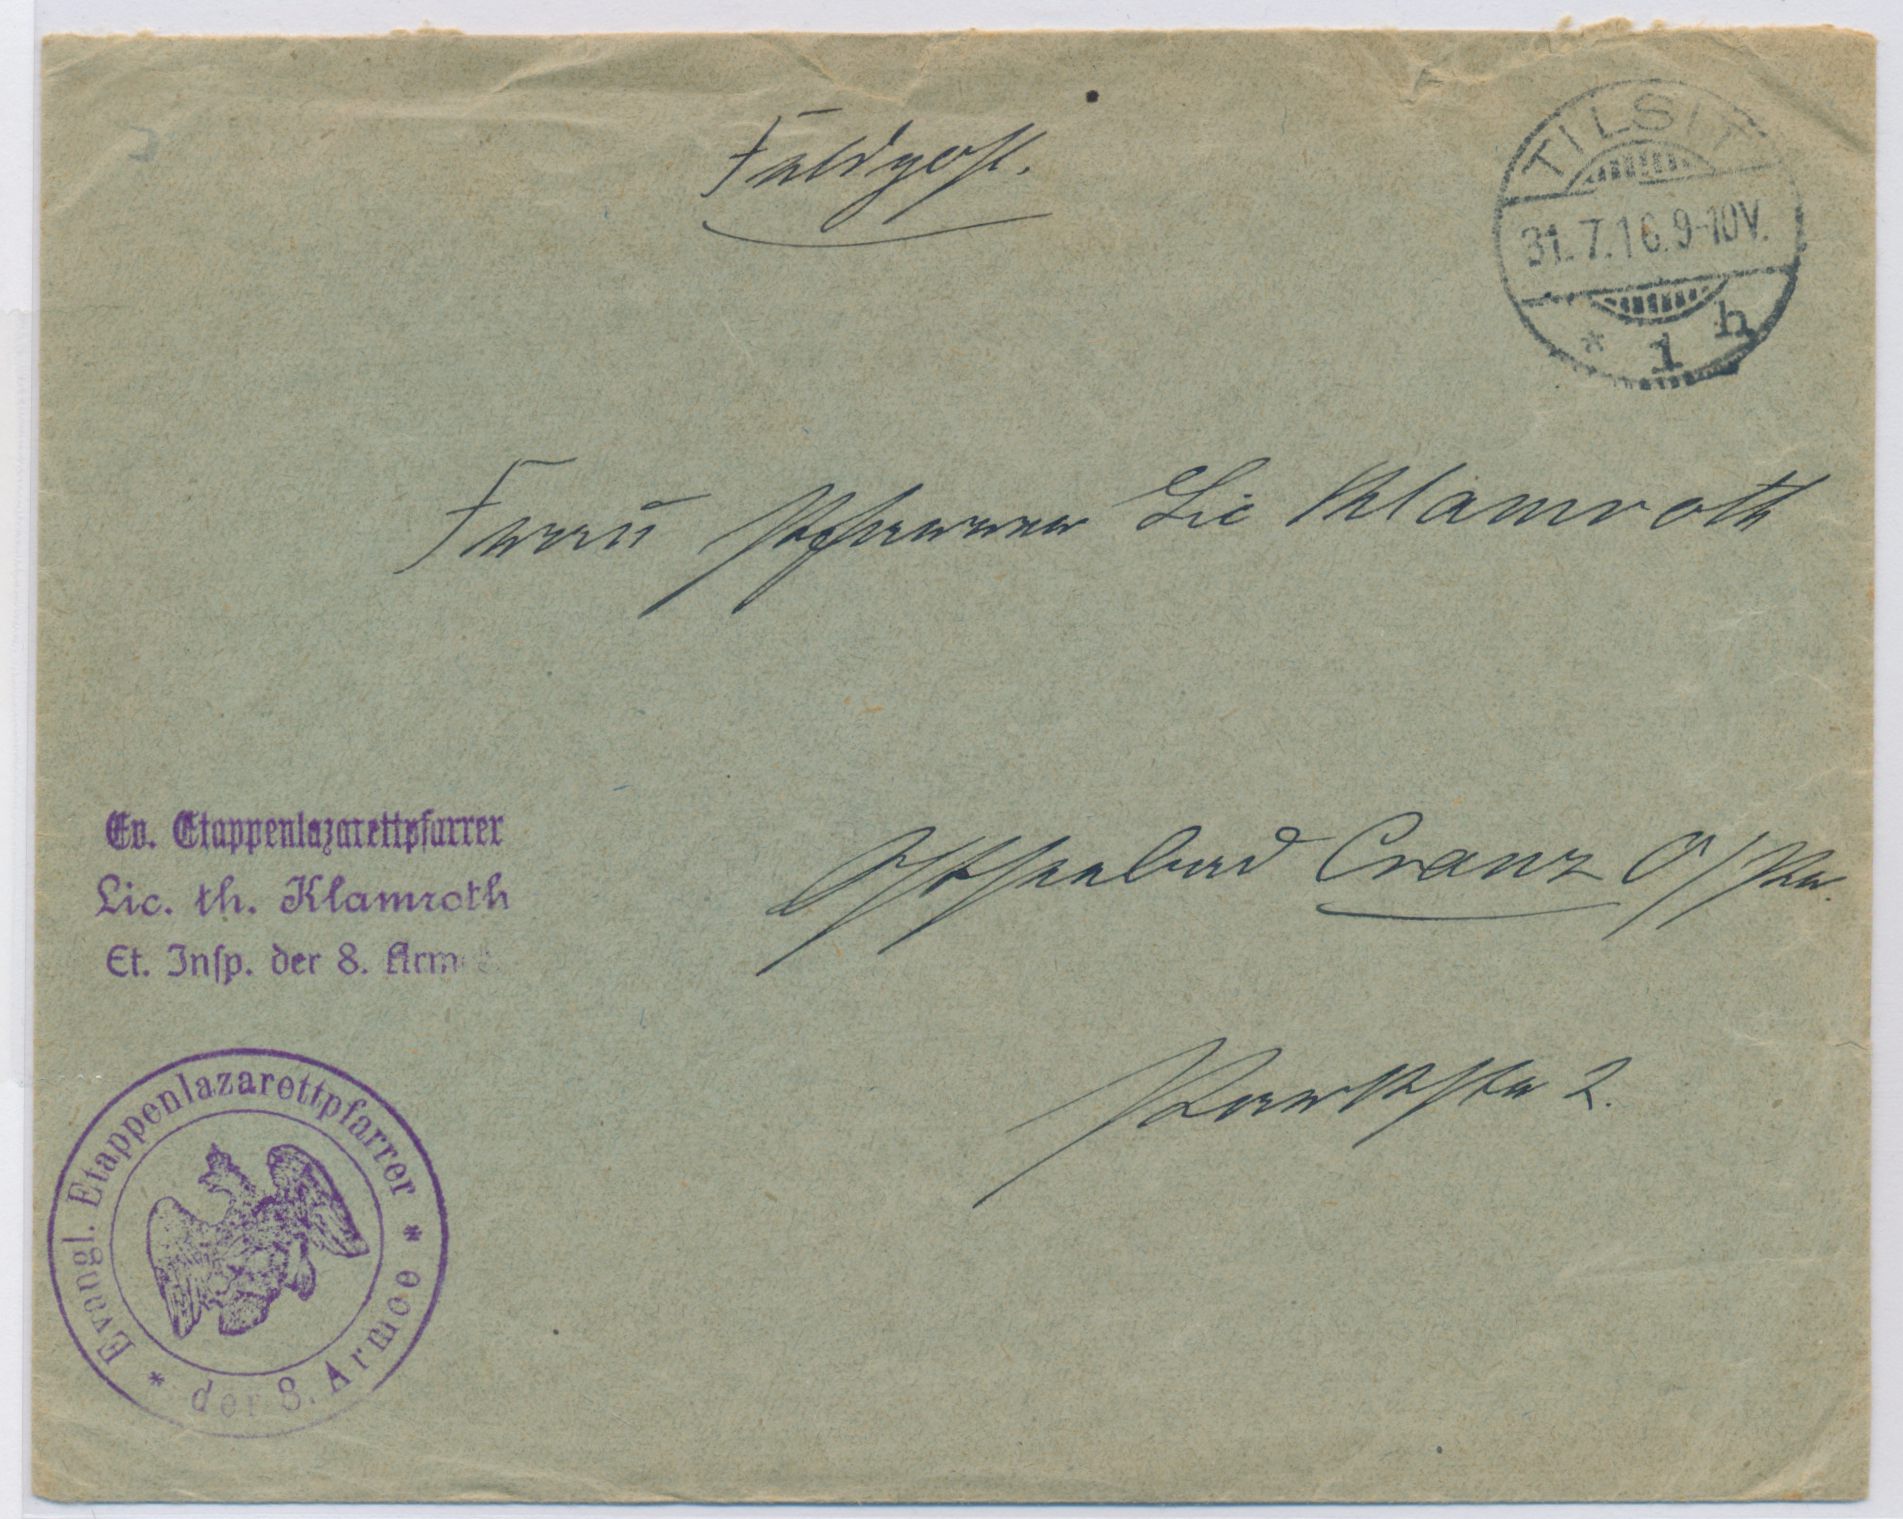 Feldpost.
TILSIT
31.7.16.9-10V.
* 1 h
Frau Pfarrer Lic Klamroth
Ostseebad Cranz O/Pr.
Parkstr 2.
Ev. Etappenlazarettpfarrer
Lic. th. Klamroth
Et. Insp. der 8. Armee.
* Evangl. Etappenlazarettpfarrer *
der 8. Armee